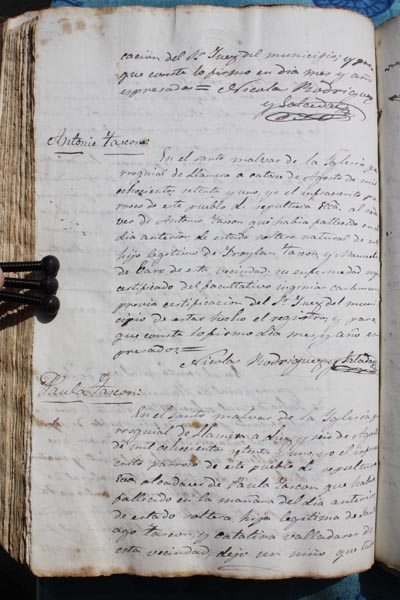 cacion del Sr Juez del municipio; y pa
que conste lo firmo en dia mes y año
espresados = Nicolas Rodriguez
y Salcedo
Antonio Tascon:
En el santo malvar de la Iglesia pa
rroquial de Llamera a catorce de Agosto de mil
ochocientos setenta y uno, yo el infraescrito pa
rroco de este pueblo di sepultura Ecca. al cada
ver de Antonio Tascon que habia fallecido en
dia anterior de estado soltero natural de
hijo legitimo de Froylan Tascon, y Manuela
de Caso de esta vecindad, su enfermedad
certificado del facultativo
previa certificacion del Sr Juez del muni
cipio de estar hecho el registro, y para
que conste lo firmo dia mes y año es
presados =
Nicolas Rodriguez y Salcedo
Paula Tascon:
En el santo malvar de la Iglesia pa
rroquial de Llamera a diez y seis de Agosto
de mil ochocientos setenta y uno, yo el infraes
crito parroco de este pueblo di sepultura
Ecca. al cadaver de Paula Tascon que habia
fallecido en la mañana del dia anterior
de estado soltera hija legitima de Santi
ago Tascon, y Catalina Valladares de
esta vecindad, dejo un niño que